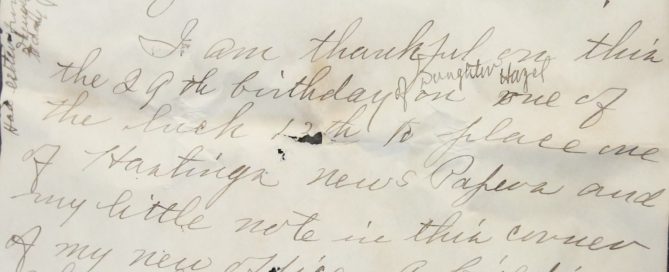 I am thankful on this
the 29th birthday of Daughter Hazel on one of
the luck 12th to place one
of Hastings news Papers and
my little note in this corner
of my new office